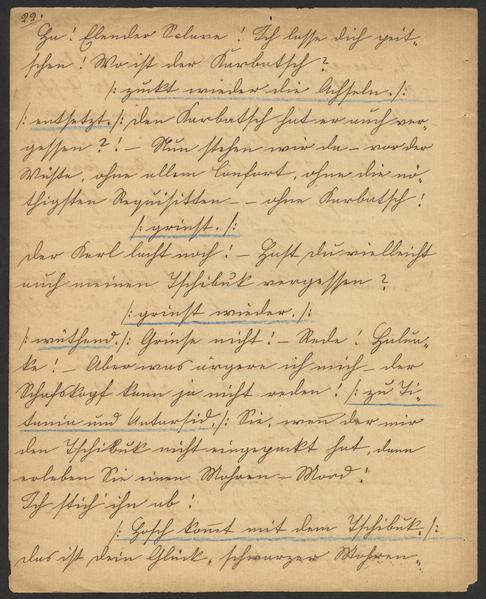 22.
Ha! Elender Sclave! Ich lasse dich peit-
schen! Wo ist der Karbatsch?
/: zuckt wieder die Achseln. :/
/: entsetzt. :/ Den Karbatsch hat er auch ver-
gessen?! — Nun stehen wir da — vor der
Wüste, ohne allem Comfort, ohne die nö-
thigsten Requisitten — — ohne Karbatsch!
/: grinst. :/
Der Kerl lacht noch! — Hast du vielleicht
auch meinen Tschibuk vergessen?
/: grinst wieder. :/
/: wüthend. :/ Grinse nicht! — Rede! Halun-
ke! — Aber was ärgere ich mich — der
Schafskopf kann ja nicht reden. /: zu Ti-
tania und Antarsid. :/ Sie, wen̄ der mir
den Tschibuk nicht eingepackt hat, dann
erleben Sie einen Mohren-Mord!
Ich stich' ihn ab!
/: Hosch kom̄t mit dem Tschibuk. :/
Das ist dein Glück, schwarzer Mohren-